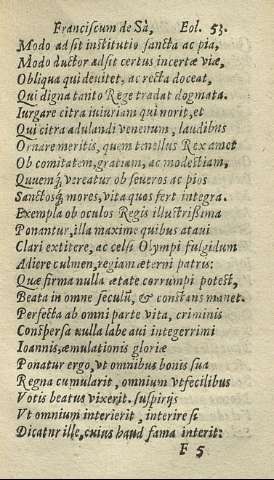 Franciscum de Sà, Eol. 53.
Modo adsit institutio sancta ac pia,
Modo ductor adsit certus incertæ viæ,
Obliqua qui devitet, ac recta doceat,
Qui digna tanto Rege tradat dogmata.
Iurgare citra iniuriam qui norit, et
Qui citra adulandi venenum, laudibus
Ornare meritis, quem tenellus Rex amet
Ob comitatem, gratiam, ac modestiam,
Quuemq́; vereatur ob seueros ac pios
Sanctosq́; mores, vita quos fert integra.
Exempla ob oculos Regis illustrißima
Ponantur, illa maxime quibus ataui
Clari extitere, ac celsi Olympi fulgidum
Adiere culmen, regiam æterni patris:
Quæ firma nulla ætate corrumpi potest,
Beata in omne seculũ, & constans manet.
Perfecta ab omni parte vita, criminis
Conspersa nulla labe aui integerrimi
Ioannis, æmulationis gloriæ
Ponatur ergo, vt omnibus bonis sua
Regna cumularit, omnium vt felicibus
Votis beatus vixerit. suspirijs
Vt omnium interierit, interire si
Dicatur ille, cuius haud fama interit:
F 5